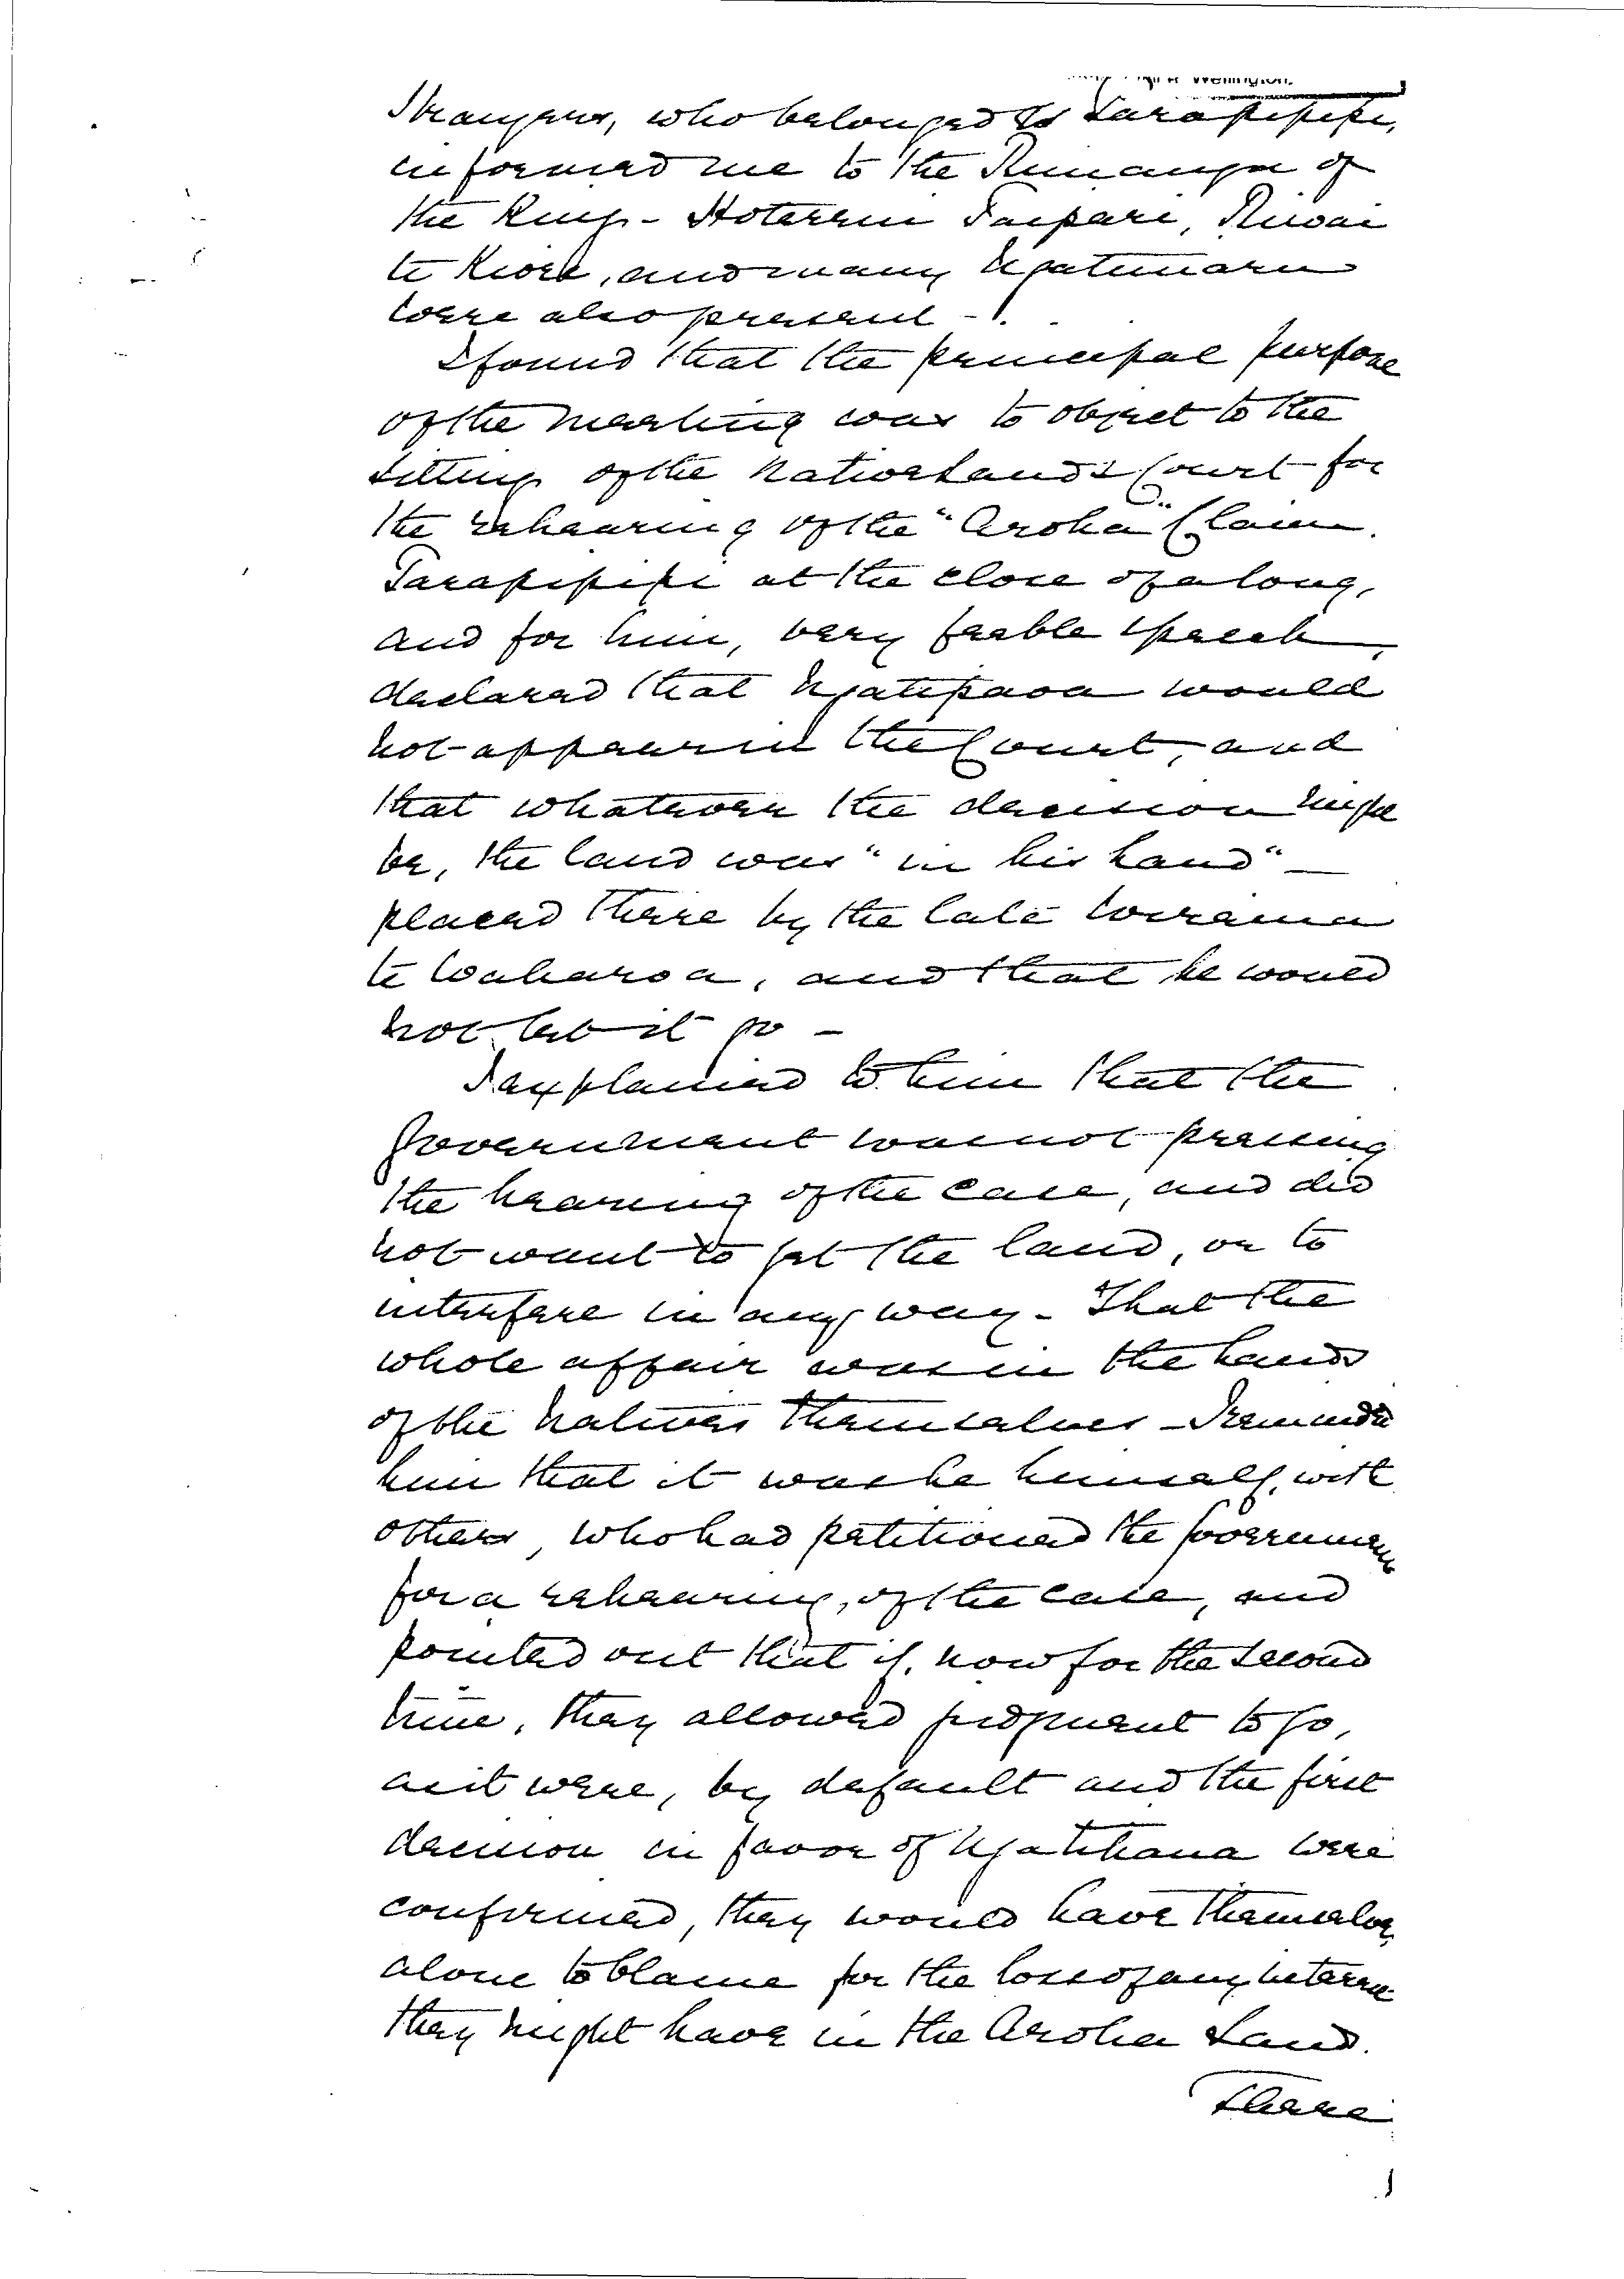 Wellington.
Strangers, who belonged to Tarapipipi,
informed me to the Runanga of
the King - Hotereni Taipari, Riwai
te Kiore, and many Ngatimaru
were also present -
I found that the principal purpose
of the meeting was to object to the
sitting of the Native Lands Court for
the rehearing of the "Aroha" Claim.
Tarapipipi at the close of a long,
and for him, very feeble speech,
declared that Ngatipaoa would
not appear in the Court, and
that whatever the decision might
be, the land was "in his hand" -
placed there by the late Wirama
te Waharoa, and that he would
not let it go -
I explained to him that the
Government was not pressing
the hearing of the case, and did
not want to get the land, or to
interfere in any way - That the
whole affair was in the hands
of the Natives themselves - I reminded
him that it was he himself, with
others, who had petitioned the Government
for a rehearing, of the case, and
pointed out that if, now for the second
time, they allowed judgment to go,
as it were, by default and the first
decision in favor of Ngatihaua were
confirmed, they would have themselves
alone to blame for the loss of any interest
they might have in the Aroha Land.
There